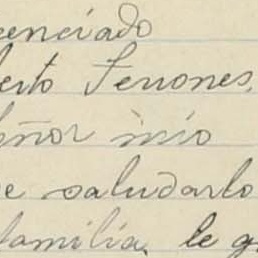 cenciado
berto Terrones.
Señor mío
e saludarlo
familia, le g